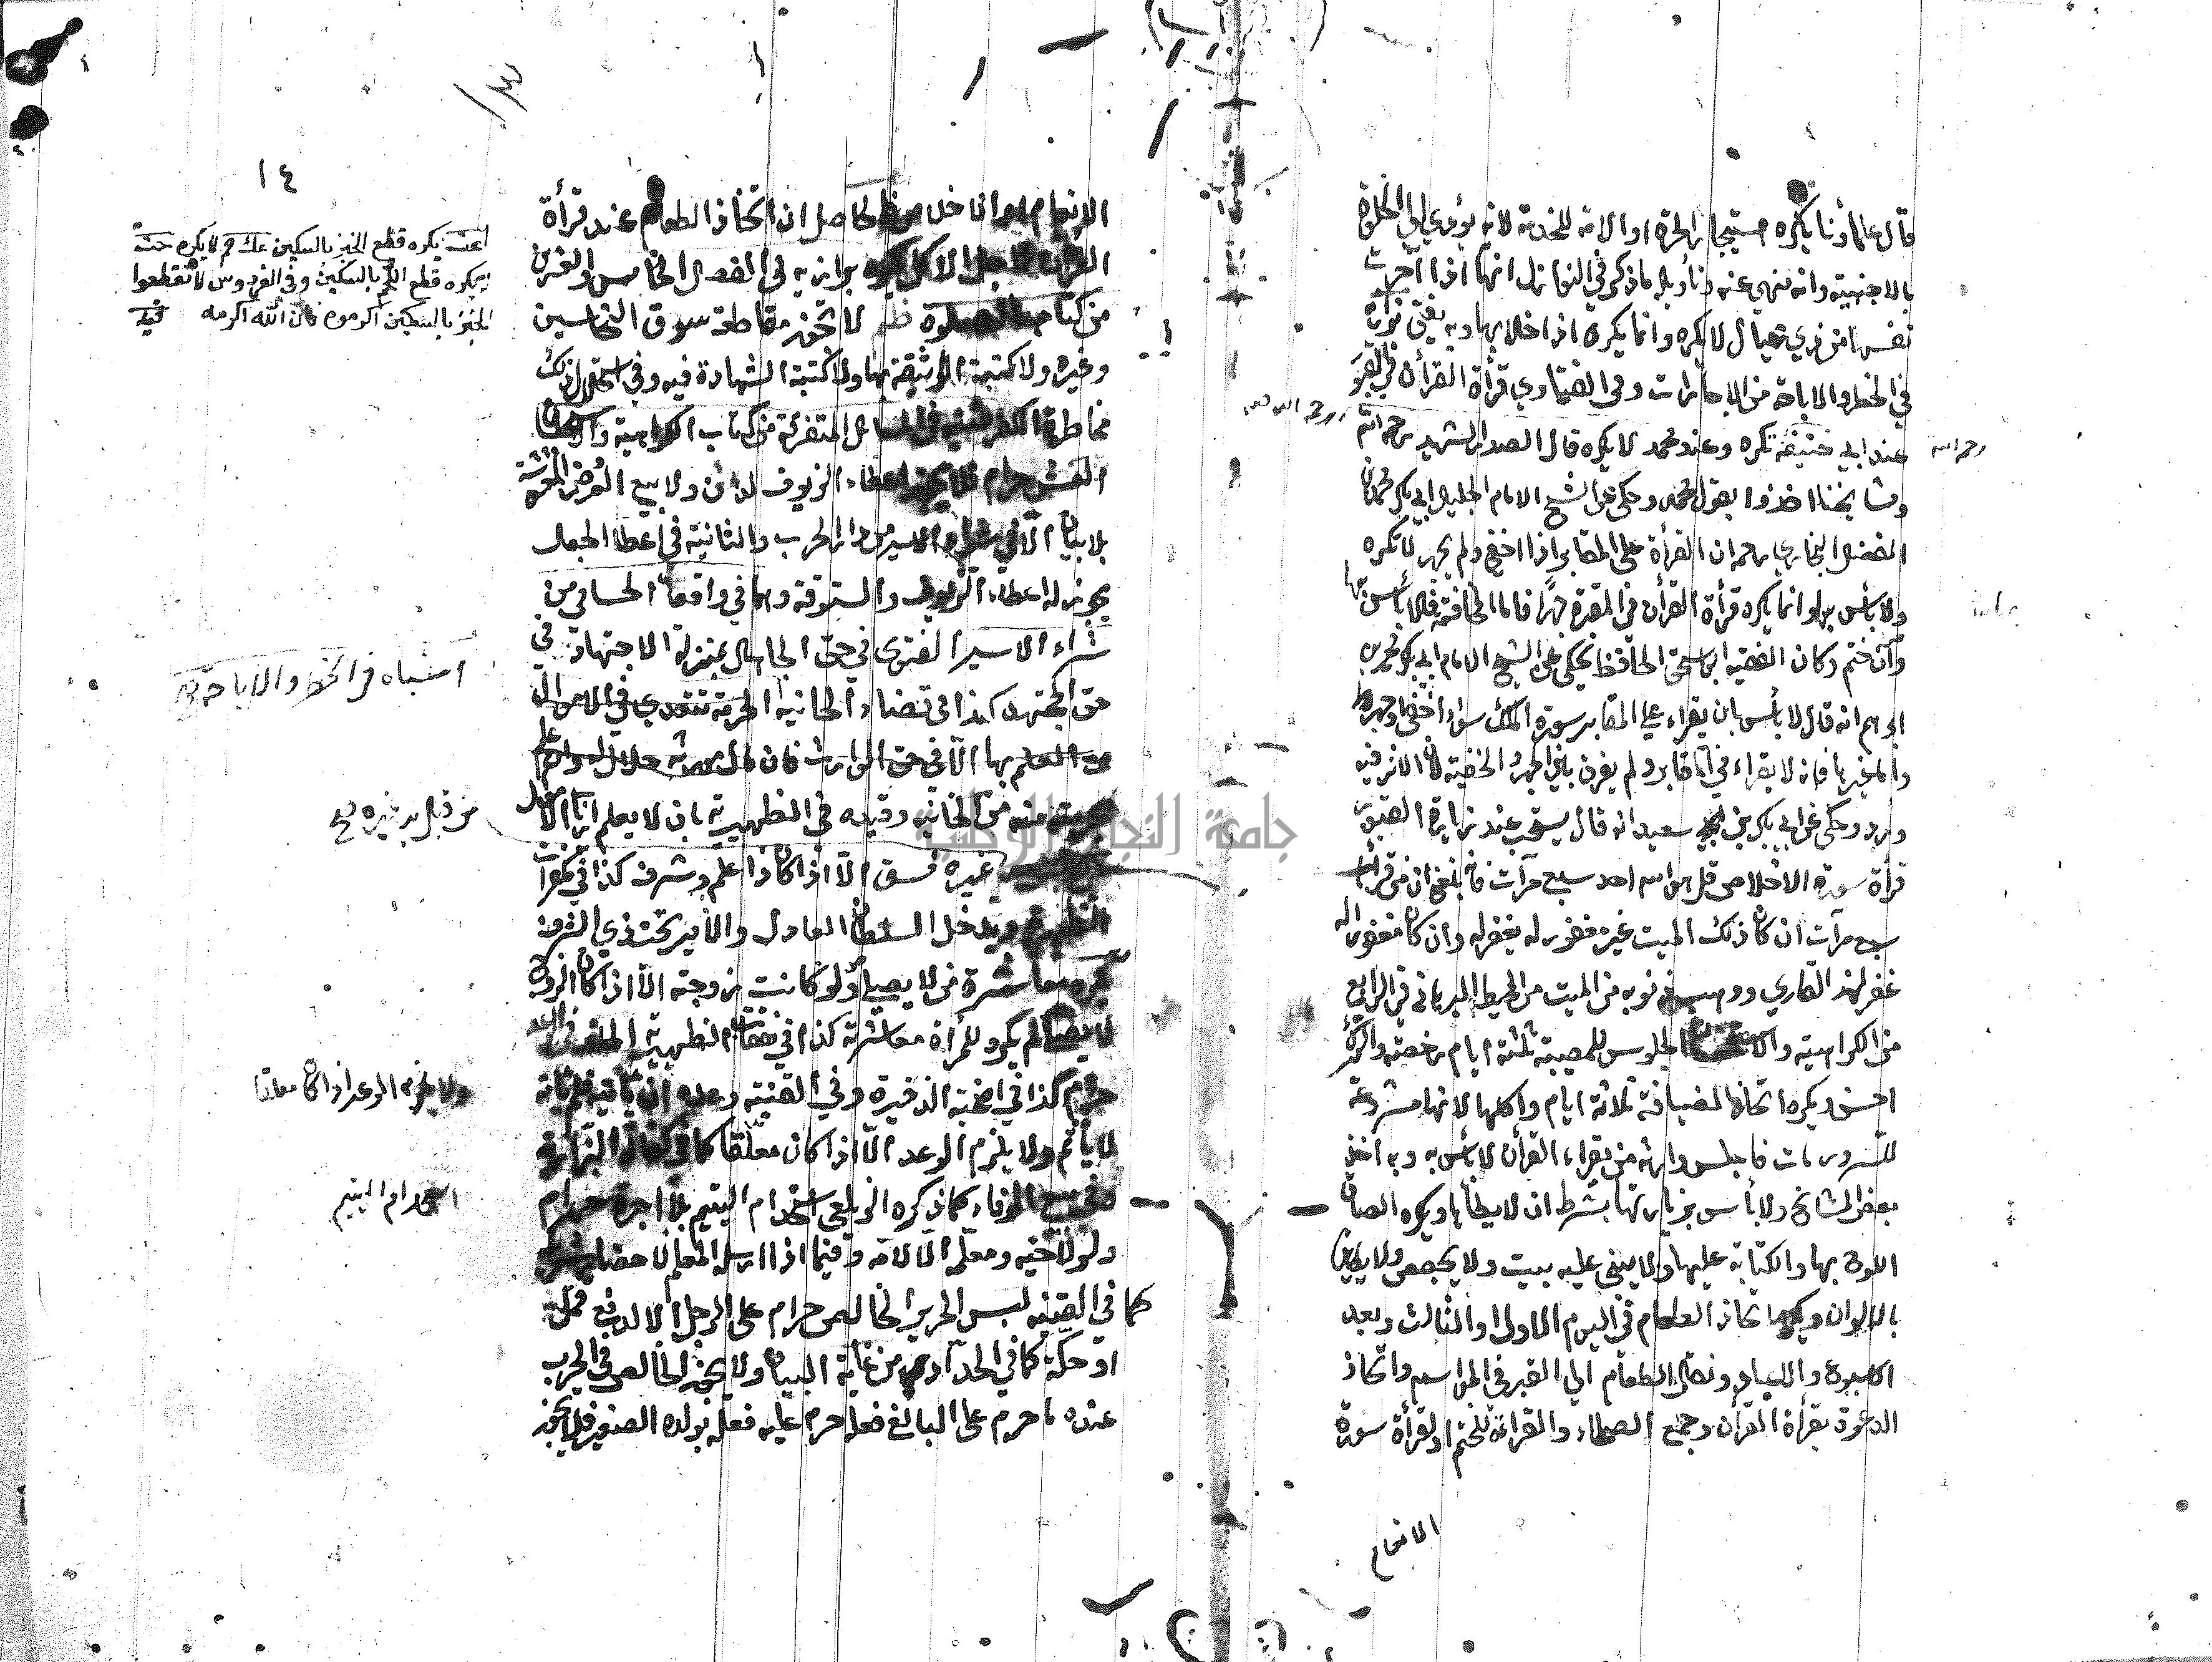 قال علماؤنا يكره استيجار الحرة او الامة للخدمة لانه يؤدي الى الخلوة
بالاجنبية وانه منهي عنه وتأويله ما ذكر في النوازل انها اذا آجرت
نفسها من ذي عيال لا يكره وانما يكره اذا خلا بها وبه يفتى
في الحظر والاباحة من الاجارات وفي الفتاوي قرأة القرآن في القبور
عند ابي حنيفة تكره وعند محمد لا يكره قال الصدر الشهيد رحمه الله
رحمه الله
ومشايخنا اخذوا بقول محمد وحكى عن الشيخ الامام الجليل ابي بكر محمد بن
الفضل البخاري رحمه ان القرأة على المقابر اذا اخفى ولم يجهر لا تكره
ولا بأس بها وانما يكره قرأة القرآن في المقبرة جهرا فاما المخافتة فلا بأس بها
وان ختم وكان الفقيه ابو اسحق الحافظ يحكى عن الشيخ الامام ابي بكر محمد بن
ابراهيم انه قال لا بأس بان يقراء على المقابر سورة الملك سواء اخفى او جهر
واما غيرها فانه لا يقراء في المقابر ولم يفرق بين الجهر والخفية لان الاثر فيه
ورد وحكى عن ابي بكر بن سعيد انه قال يستحب عند زيارة القبور
قرأة سورة الاخلاص قل هو الله احد سبع مرات فانه بلغني ان من قرأها
سبع مرات ان كان ذلك الميت غير مغفور له يغفر له وان كان مغفورا له
غفر لهذا القاري ووهب ذنوبه من الميت من المحيط البرهاني في الرابع
من الكراهية والاستحسان الجلوس للمصيبة ثلثة ايام رخصة والترك
احسن ويكره اتخاذ الضيافة ثلاثة ايام واكلها لانها مشروعة
للسرور مات فاجلس وارثه من يقراء القرآن لا بأس به وبه اخذ
بعض المشايخ ولا بأس بزيارتها بشرط ان لا يطأها ويكره الصاق
اللوح بها والكتابة عليها ولا يبنى عليه بيت ولا يجصص ولا يطين
بالالوان ويكره اتخاذ الطعام في اليوم الاول والثالث وبعد
الاسبوع والاعياد ونقل الطعام الى القبر في المواسم واتخاذ
الدعوة بقرأة القرآن وجمع الصلحاء والقراء للختم او لقرأة سورة
الانعام
١٤
الانعام او الاخلاص فالحاصل ان اتخاذ الطعام عند قرأة
القرآن لاجل الاكل يكره بزازيه في الفصل الخامس والعشرين
من كتاب الصلوة لا تجوز مقاطعة سوق النخاسين
وغيره ولا كتبة الوثيقة بها ولا كتبة الشهادة فيه وفي استحلال ذلك
مخاطرة الكفر قنيه في المسائل المتفرقة من كتاب الكراهية
الغش حرام فلا يجوز اعطاء الزيوف لدائن ولا بيع العروض المغشوشة
بلا بيان الا في شراء الاسير من دار الحرب والثانية في اعطاء الجعل
يجوز له اعطاء الزيوف والستوقة وهما في واقعات الحسامي من
شراء الاسير الفتوى في حق الجاهل بمنزلة الاجتهاد في
حق المجتهد كذا في قضاء الخانية الحرمة تتعدي في الاموال
مع العلم بها الا في حق الوارث فان مال مورثه حلال له وان علم
بحرمته منه من الخانيه وقيده في الظهيرية بان لا يعلم ارباب الاموال
غيره فسق الا اذا كان ذا علم وشرف كذا في مكفرات
الظهيرية ويدخل السلطان العادل والامير تحت ذي الشرف
تكره معاشرة من لا يصلي ولو كانت زوجته الا اذا كان الزوج
لا يصلي لم يكره للمرأة معاشرته كذا في نفقات الظهيرية الخلف في الوعد
حرام كذا في اضحية الذخيرة وفي القنية وعده ان يأتيه فلم يأته
لا يأثم ولا يلزم الوعد الا اذا كان معلقا كما في كفالة البزازية
وفي بيع الوفاء كما ذكره الزيلعي استخدام اليتيم بلا اجرة حرام
ولو لاخيه ومعلمه الا لامه وفيما اذا ارسله المعلم لاحضار شريكه
كما في القنية لبس الحرير الخالص حرام على الرجل الا لدفع قمل
او حكة كما في الحدادي من غاية البيان ولا يجوز الخالص في الحرب
عنده ما حرم على البالغ فعله حرم عليه فعله بولده الصغير فلا يجوز
يكره قطع الخبز بالسكين عك خم لا يكره
يكره قطع اللحم بالسكين وفي الفردوس لا تقطعوا
الخبز بالسكين اكرموه فان الله اكرمه قنيه
اشباه في الحظر والاباحة
من قبل يد غيره
ولا يلزم الوعد الا اذا كان معلقا
استخدام اليتيم
جامعة النجاح الوطنية